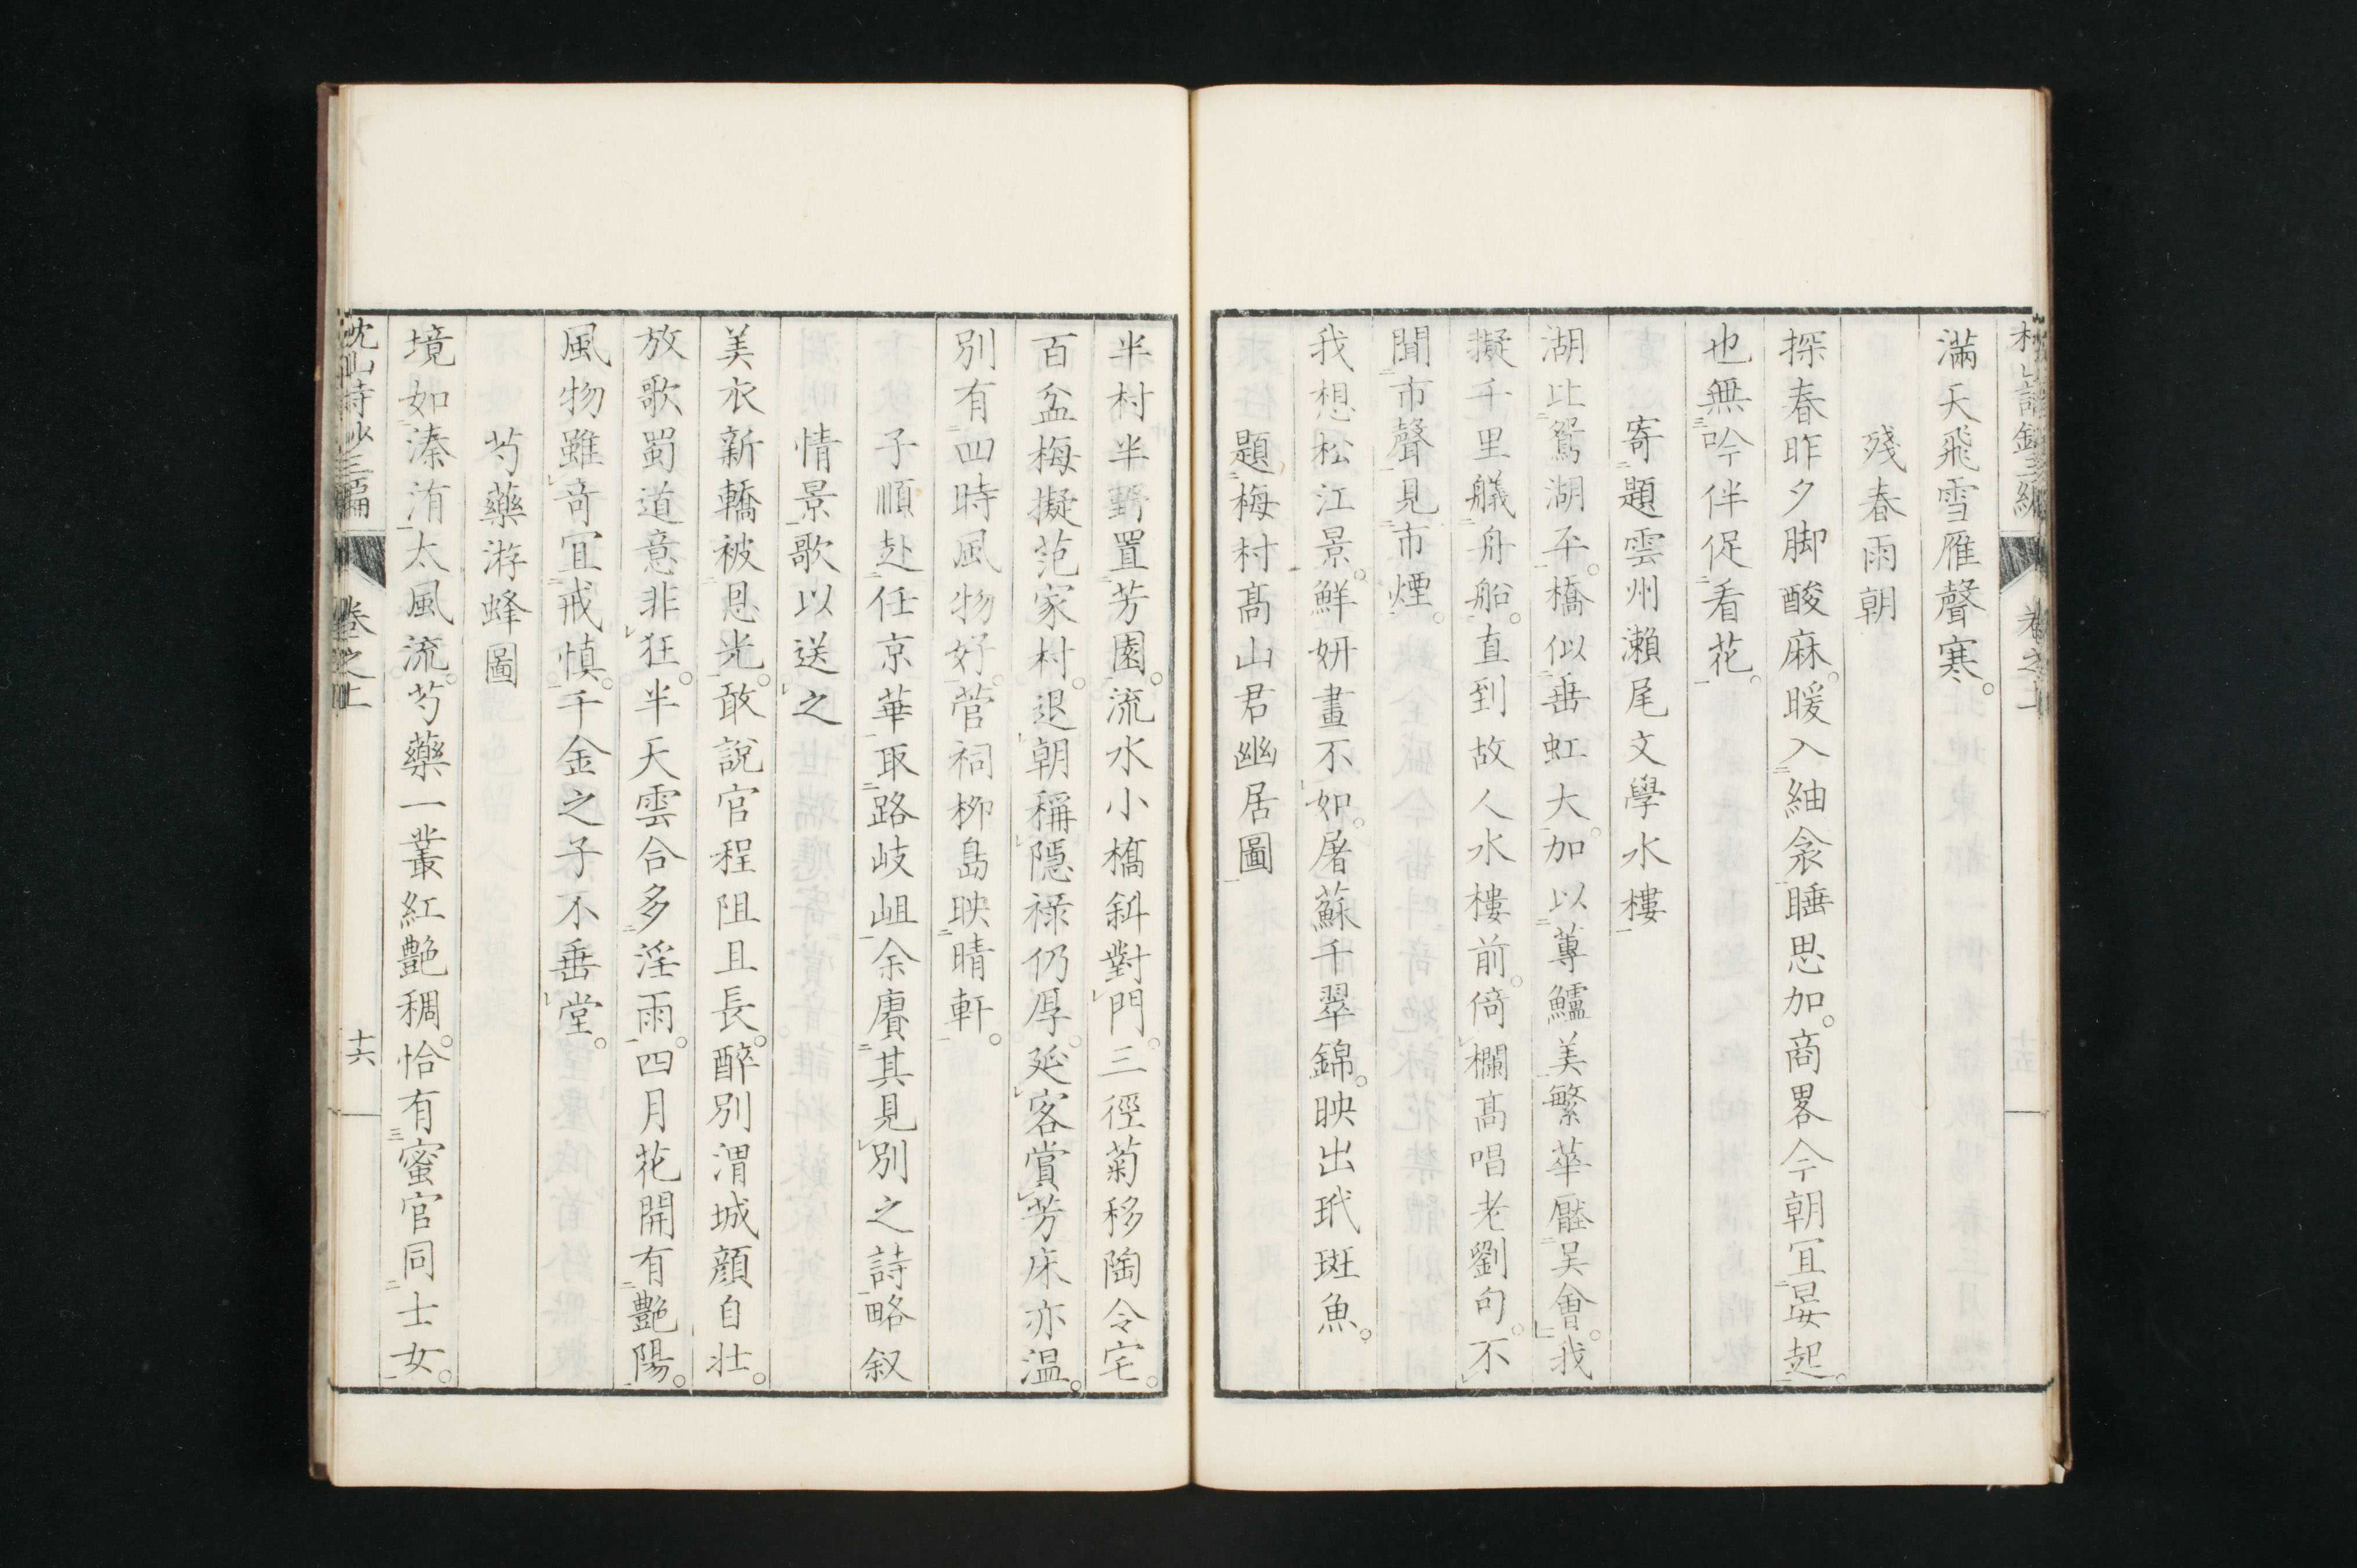 滿天飛雪雁聲寒。
殘春雨朝
探春昨夕脚酸麻。暖入紬衾睡思加。商畧今朝宜晏起。
也無吟伴促看花。
寄題雲州瀨尾文學水樓
湖比鴛湖平。橋似垂虹大。加以蓴鱸美繁華壓吴會。我
擬千里艤舟船。直到故人水樓前。倚欄高唱老劉句。不
聞市聲見市煙。
我想松江景。鮮妍畫不如。屠蘇千翠錦。映出玳斑魚。
題梅村髙山君幽居圖
半村半野置芳園。流水小橋斜對門。三徑菊移陶令宅。
百盆梅擬范家村。退朝稱隱祿仍厚。延客賞芳床亦温。
別有四時風物好。菅祠栁島映晴軒。
子順赴任京華取路岐岨余賡其見別之詩略叙
情景歌以送之
美衣新轎被恩光。敢說官程阻且長。醉別渭城顔自壯。
放歌蜀道意非狂。半天雲合多淫雨。四月花開有艶陽。
風物雖竒宜戒慎。千金之子不垂堂。
芍藥游蜂圖
境如溱洧太風流。芍藥一叢紅艶稠。恰有蜜官同士女。
枕山詩鈔三編
卷之上
十六